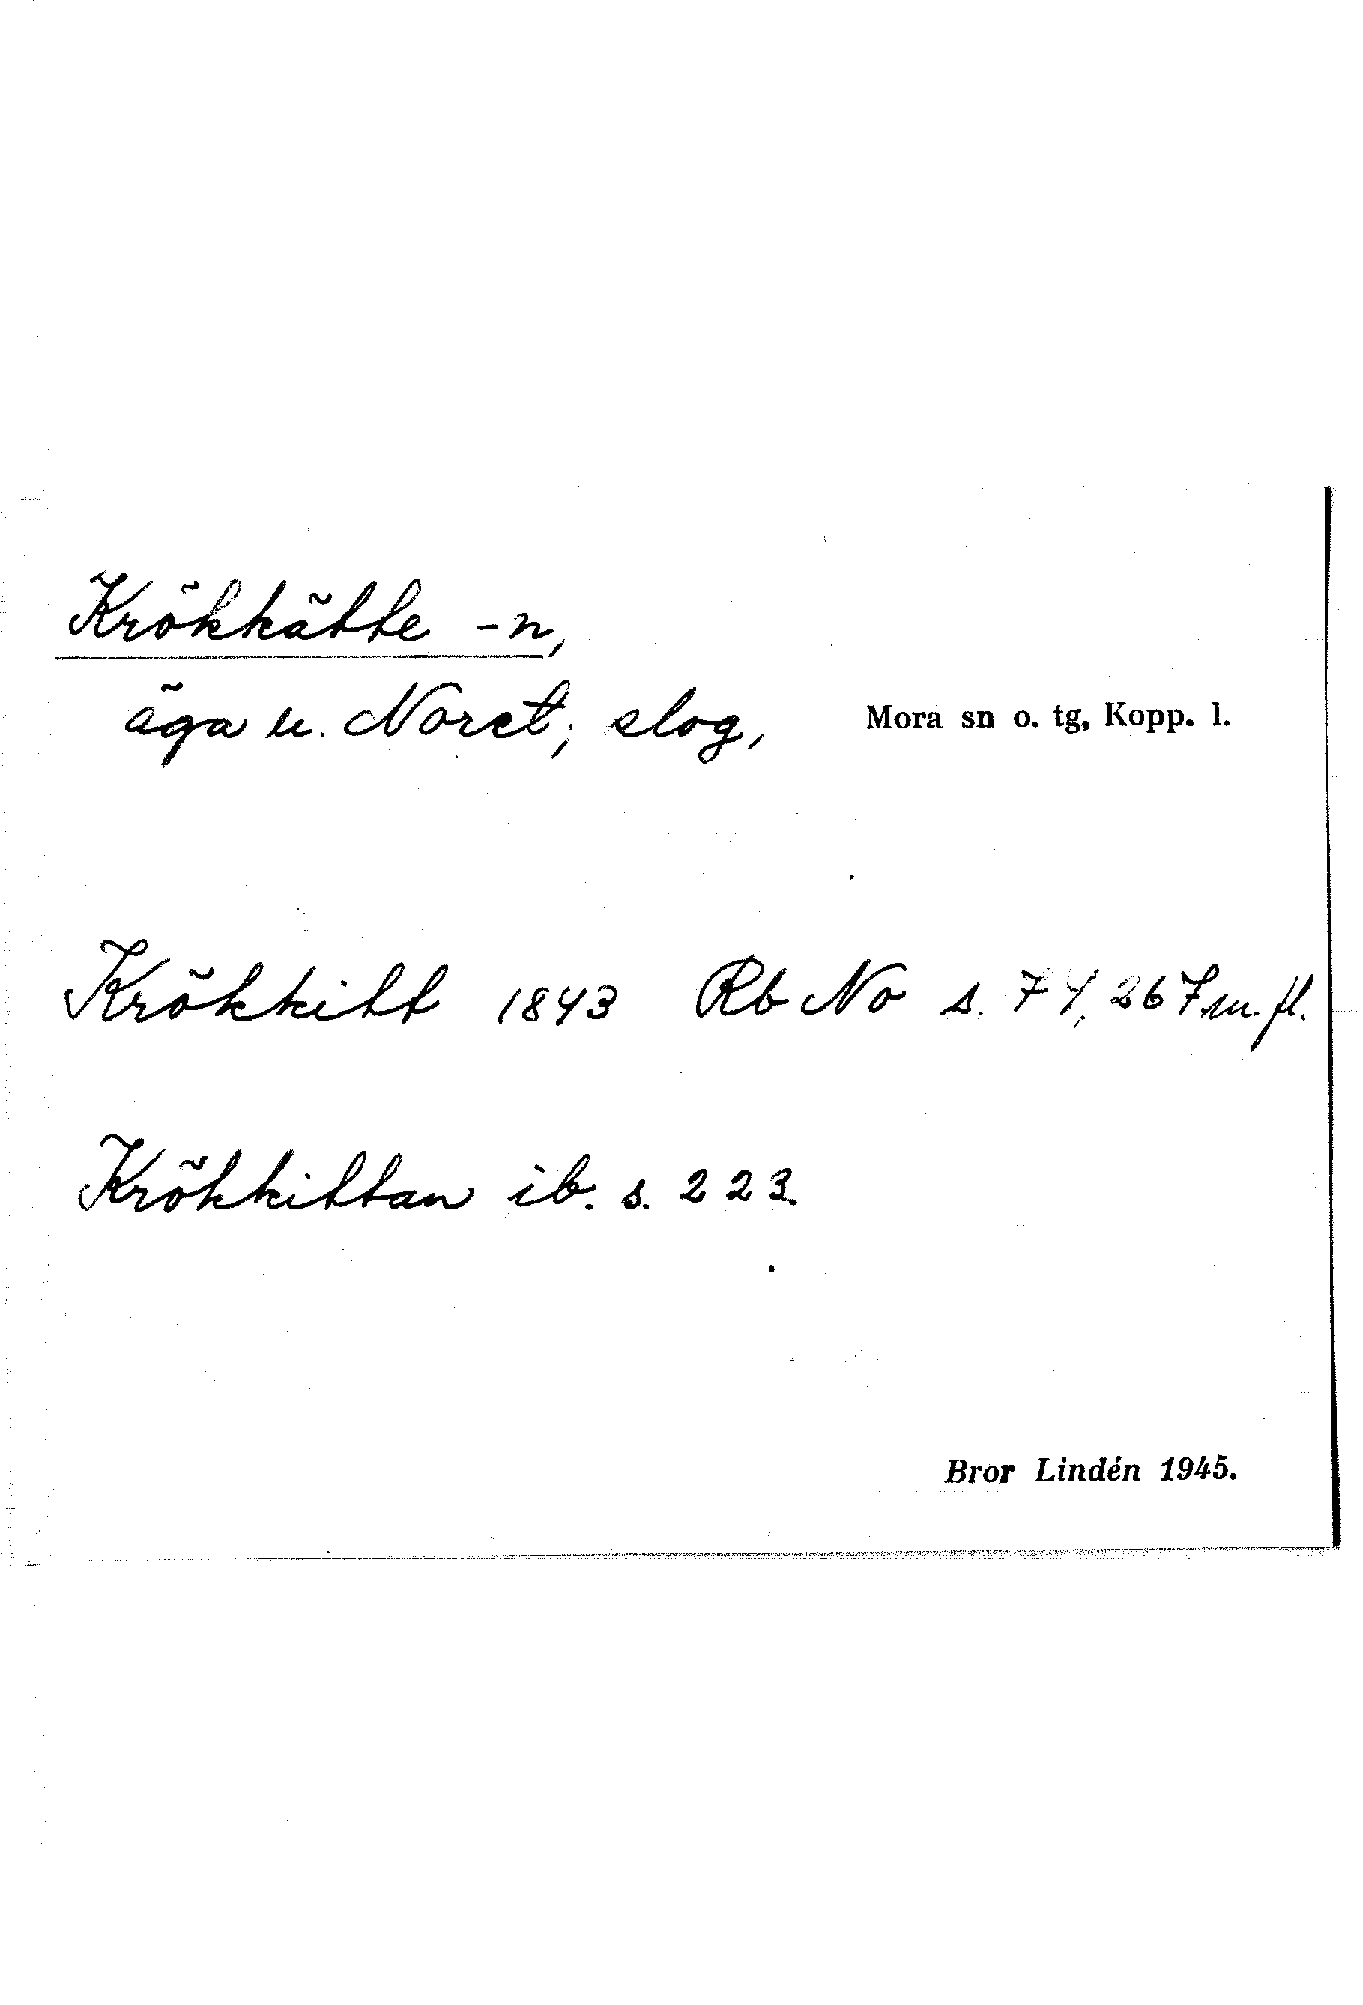 Krökkätte -n,
äga u. Noret; slog, Mora sn o. tg, Kopp. l.
Krökkitt 1843 Rb No s. 74, 267 m. fl.
Krökkittan ib. s. 223.
Bror Lindén 1945.